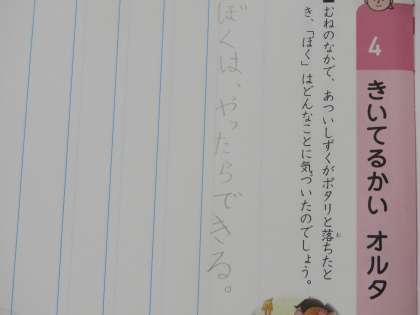 4 きいてるかい オルタ
■むねのなかで、あついしずくがポタリと落ちたと
き、「ぼく」はどんなことに気づいたのでしょう。
ぼくは、やったらできる。